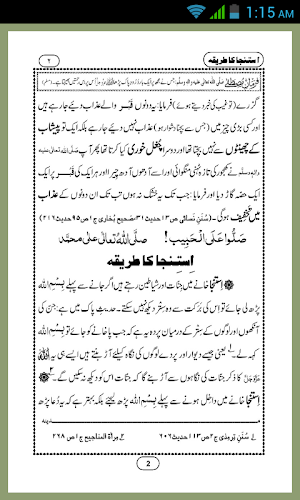 1:15 AM
۲
استنجا کا طریقہ
گزرے (تو غیب کی خبر دیتے ہوئے) فرمایا: یہ دونوں قبر والے عذاب دیئے جارہے ہیں
اور کسی بڑی چیز میں (جس سے بچنا دشوار ہو) عذاب نہیں دیئے جا رہے بلکہ ایک تو پیشاب
کے چھینٹوں سے نہیں بچتا تھا اور دوسرا چغل خوری کیا کرتا تھا پھر آپ صلی اللہ تعالیٰ علیہ
واٰلہٖ وسلم نے کھجور کی تازہ ٹہنی منگوائی اور اسے آدھوں آدھ چیرا اور ہر ایک کی قبر پر ایک
ایک حصہ گاڑ دیا اور فرمایا: جب تک یہ خشک نہ ہوں تب تک ان دونوں کے عذاب
میں تخفیف ہوگی۔ (سُنَنِ نَسائی ص۱۳ حدیث ۳۱ صَحیح بُخاری ج۱ ص۹۵ حدیث ۲۱۶)
صَلُّوا عَلَی الْحَبِیب! صلَّی اللہُ تعالٰی علٰی محمَّد
اِستِنجا کا طریقہ
استنجا خانے میں جنات اور شیاطین رہتے ہیں اگر جانے سے پہلے بِسْمِ اللہ
پڑھ لی جائے تو اس کی برکت سے وہ ستر دیکھ نہیں سکتے۔ حدیثِ پاک میں ہے: جن کی
آنکھوں اور لوگوں کے ستر کے درمیان پردہ یہ ہے کہ جب پاخانے کو جائے تو بِسْمِ اللہ
کہہ لے۔ یعنی جیسے دیوار اور پردے لوگوں کی نگاہ کیلئے آڑ بنتے ہیں ایسے ہی یہ اللہ
عزوجل کا ذکر جنات کی نگاہوں سے آڑ بنے گا کہ جنات اس کو دیکھ نہ سکیں گے۔
استنجا خانے میں داخل ہونے سے پہلے بِسْمِ اللہ پڑھ لیجئے بلکہ بہتر ہے کہ یہ دُعا پڑھ
سُنَنِ تِرمِذی ج۲ ص۱۱۳ حدیث ۶۰۶
مِراٰۃُ المناجیح ج۱ ص۲۶۸
2